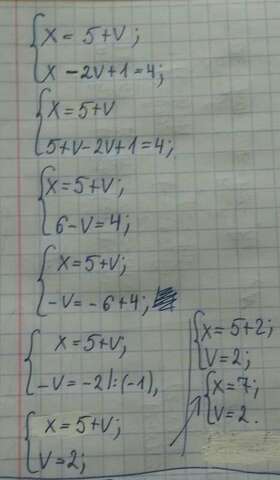 x = 5+v;
x - 2v+1=4;
x=5+v
5+v-2v+1=4;
x=5+v;
6-v=4;
x=5+v;
-v=-6+4;
x=5+v;
-v=-2|:(-1),
x=5+v;
v=2;
x=5+2;
v=2;
x=7;
v=2.